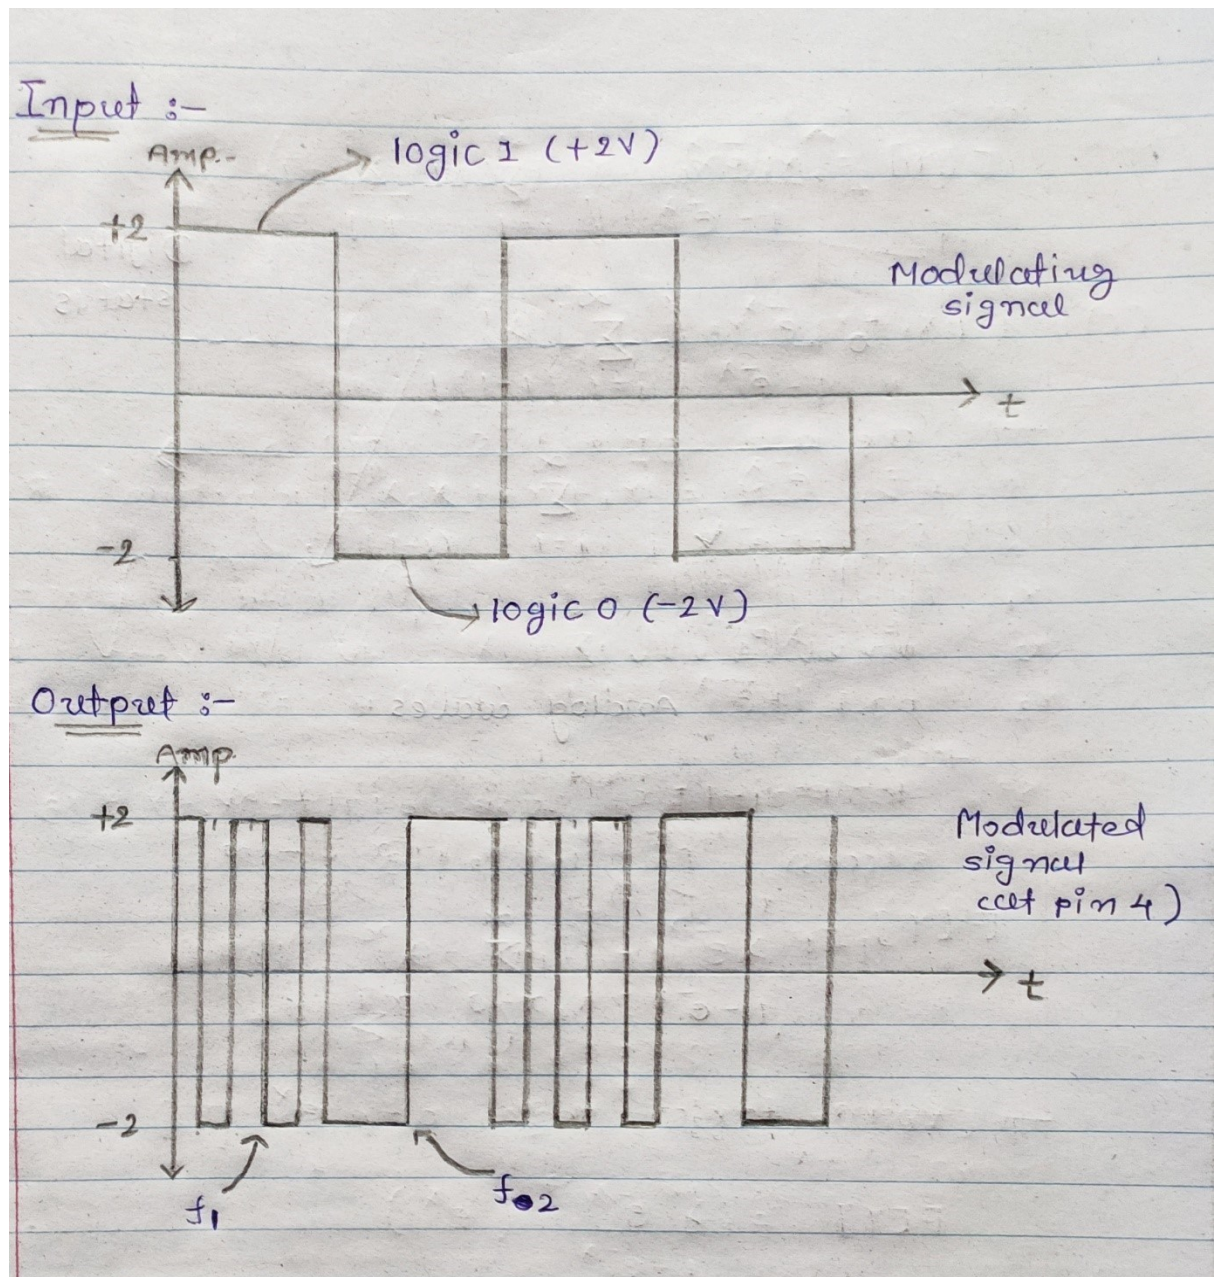 Input :-
Amp.-
logic 1 (+2V)
+2
Modulating
signal
t
-2
logic 0 (-2V)
Output :-
Amp.
+2
Modulated
signal
(at pin 4)
t
-2
f1
f2